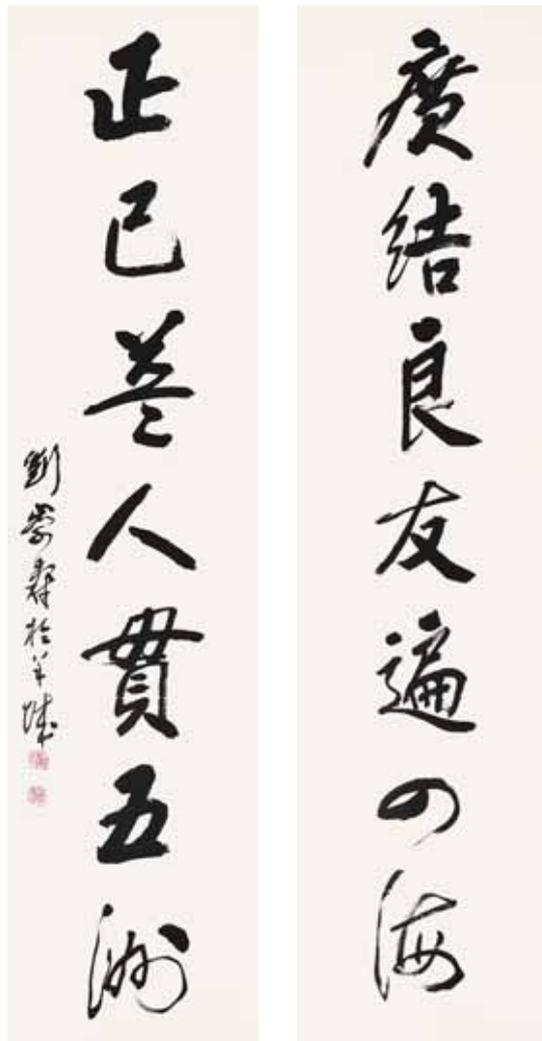 廣結良友遍四海
正己益人貫五洲
劉崇壽於羊城